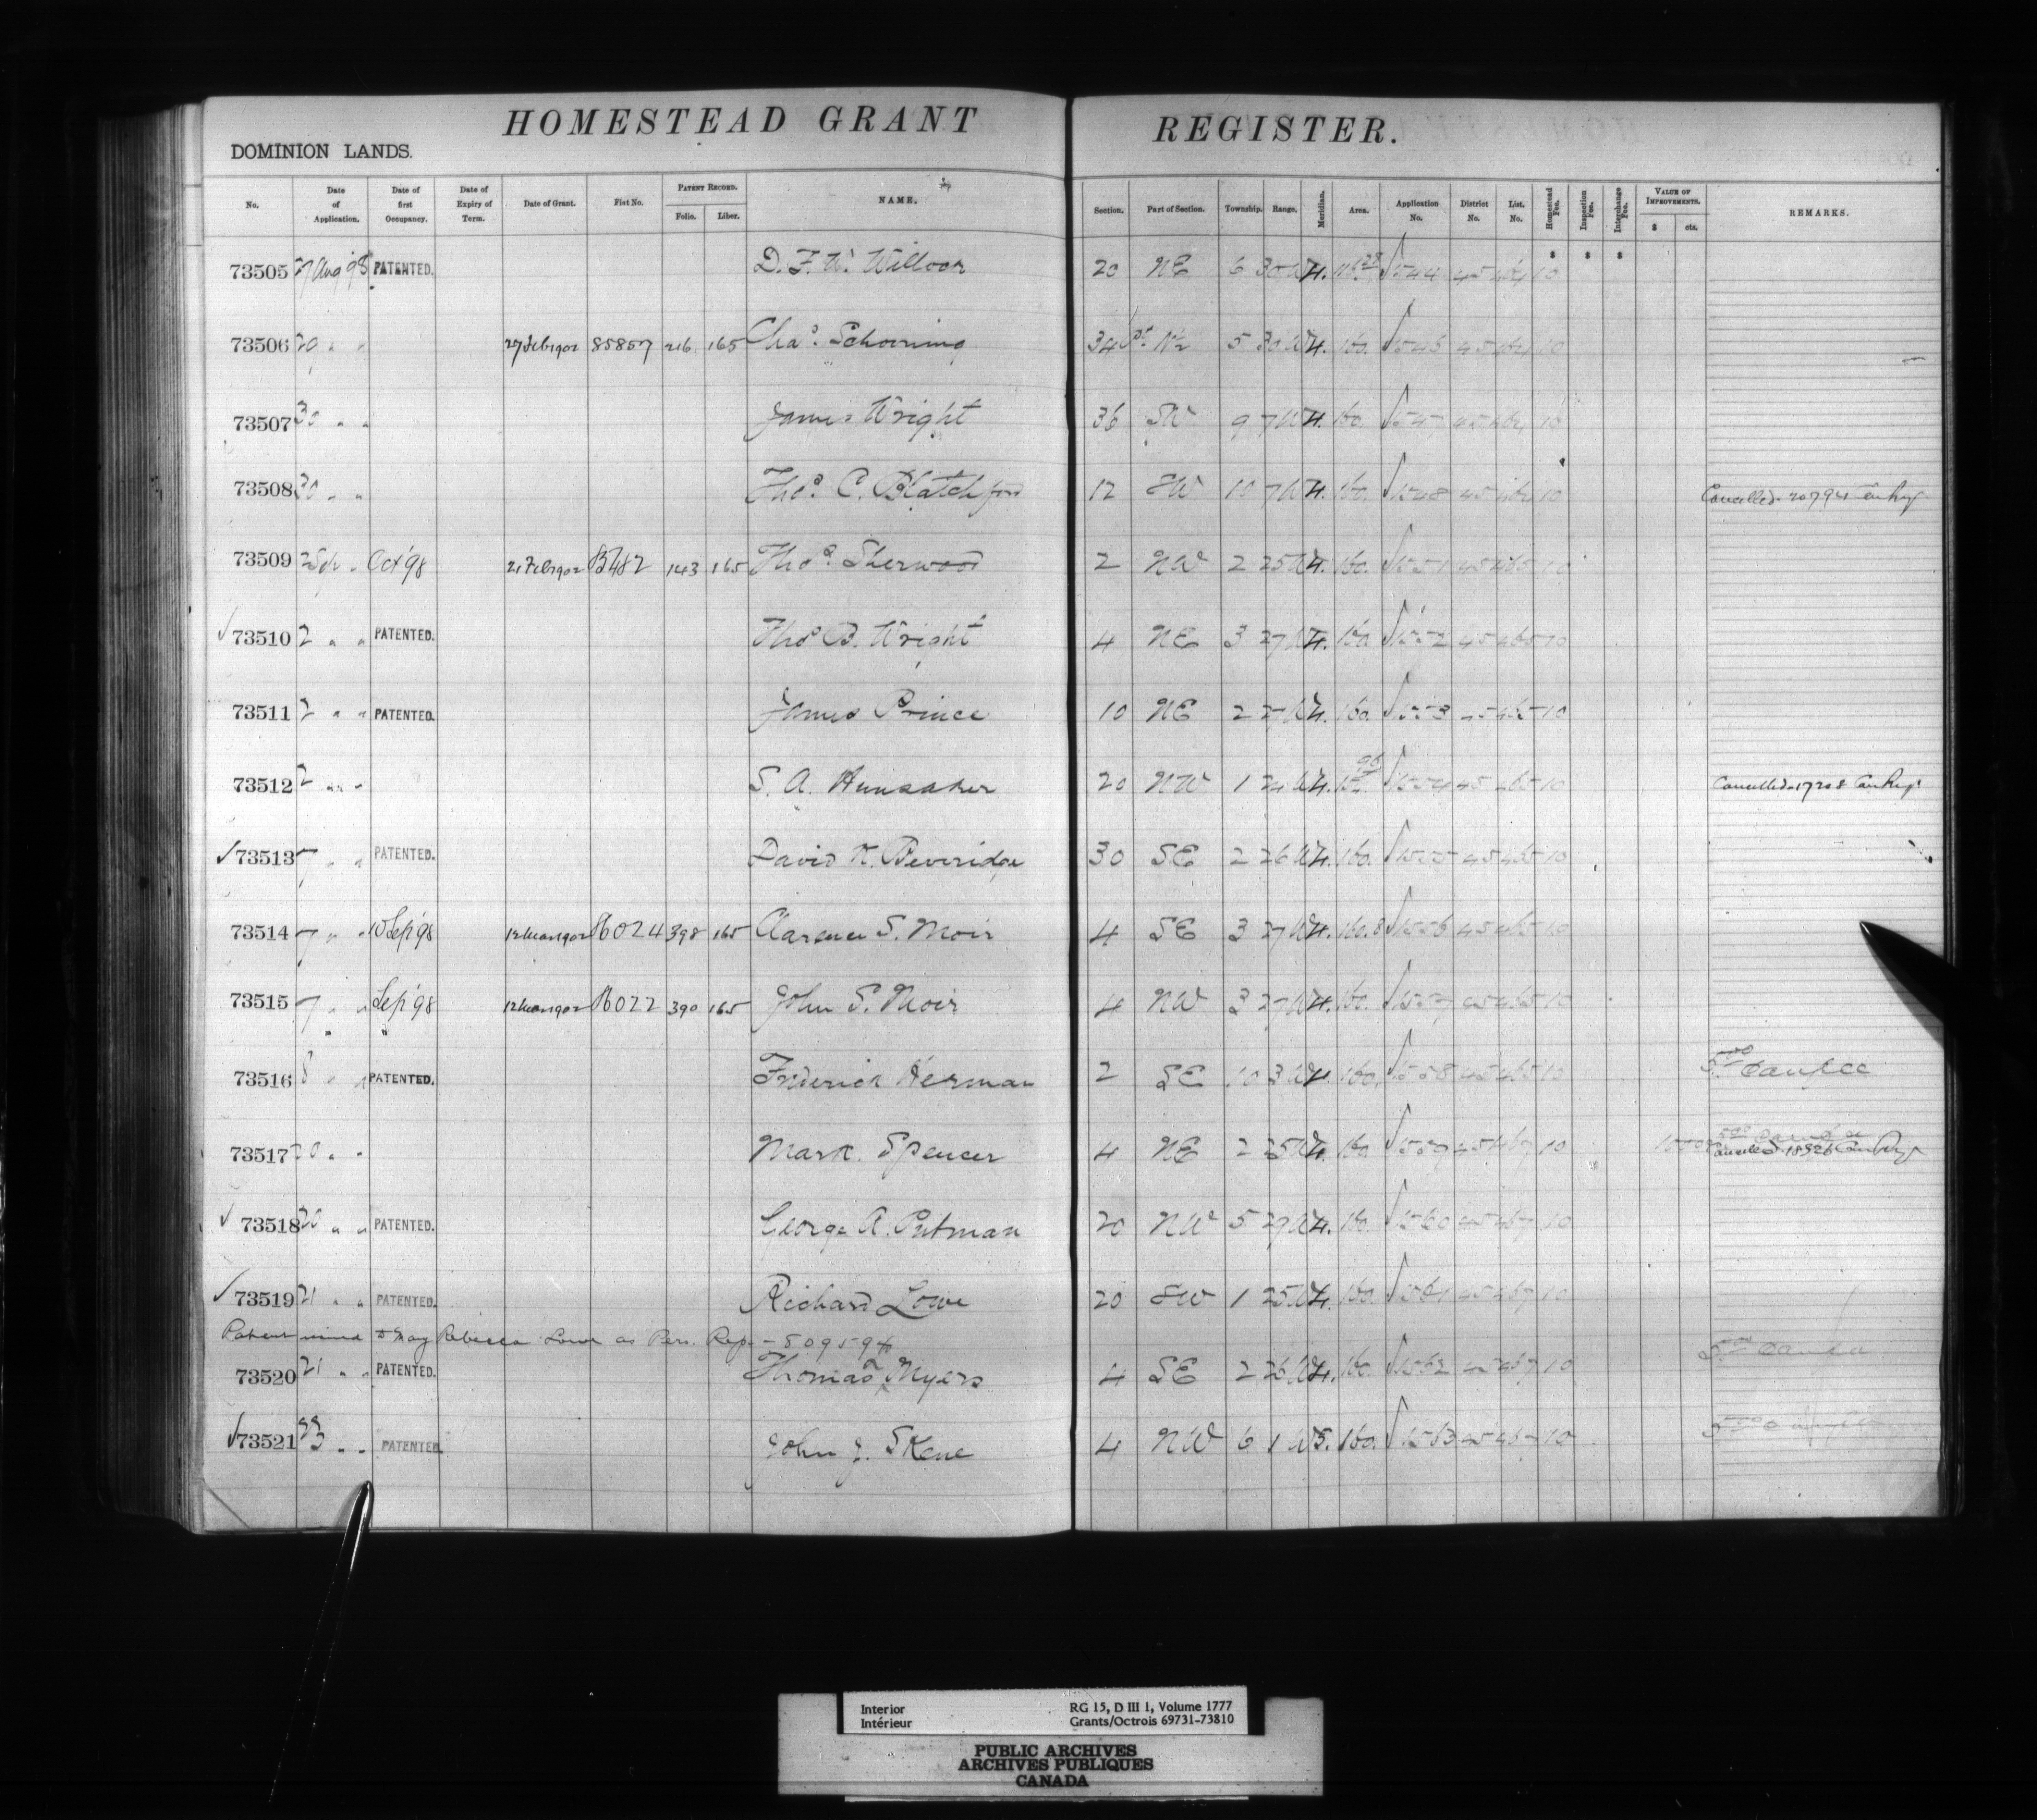 HOMESTEAD GRANT REGISTER.
DOMINION LANDS.
No. Date of Application. Date of first Occupancy. Date of Expiry of Term. Date of Grant. Fiat No. PATENT RECORD. Folio. Liber. NAME. Section. Part of Section. Township. Range. Meridian. Area. Application No. District No. List. No. Homestead Fee. Inspection Fee. Interchange Fee. VALUE OF IMPROVEMENTS. $ cts. REMARKS.
$ $ $
73505 27 Aug '98 PATENTED. D. F. W. 20 NE 6 30 W 4. 45 464 10
73506 " " 27 Feb 1902 85857 216 165 Chas. Schoening 34 Pt. N½ 5 30 W 4. 160. 1546 45 464 10
73507 30 " " James Wright 36 SW 9 7 W 4. 160. 1547 45 464 10
73508 30 " " Thos. C. Blatchford 12 SW 10 7 W 4. 160. 1548 45 464 10 Cancelled
73509 2 Sep " Oct '98 21 Feb 1902 143 165 Thos. Sherwood 2 NW 2 25 W 4. 160. 1551 45 465 10
73510 2 " " PATENTED. Thos B. Wright 4 NE 3 27 W 4. 160 1552 45 465 10
73511 2 " " PATENTED. James Prince 10 NE 2 27 W 4. 160. 1553 45 465 10
73512 2 " " S. A. Hunsaker 20 NW 1 W 4. 1554 45 465 10 Cancelled 17208
73513 7 " " PATENTED. David K. Beveridge 30 SE 2 26 W 4. 160. 1555 45 465 10
73514 7 " " 10 Sep '98 12 Mar 1902 86024 398 165 Clarence S. Moir 4 SE 3 27 W 4. 160.8 1556 45 465 10
73515 7 " " Sep '98 12 Mar 1902 86022 390 165 John S. Moir 4 NW 3 27 W 4. 160. 1557 45 465 10
73516 8 " " PATENTED. Frederick Herman 2 SE 10 3 W 4. 160. 1558 45 465 10
73517 20 " " Mark Spencer 4 NE 2 25 W 4. 160 1559 45 467 10 Cancelled
73518 20 " " PATENTED. George A. Putman 20 NW 5 29 W 4. 160. 1560 45 467 10
73519 21 " " PATENTED. Richard Lowe 20 SW 1 25 W 4. 160. 1561 45 467 10
Patent issued to May Rebecca Lowe as Pers. Rep. - 509594
73520 21 " " PATENTED. Thomas T. Myers 4 SE 2 26 W 4. 160. 1562 45 467 10
73521 23 " " PATENTED. John J. Skene 4 NW 6 1 W 5. 160. 1563 45 467 10
Interior
Intérieur
RG 15, D III 1, Volume 1777
Grants/Octrois 69731-73810
PUBLIC ARCHIVES
ARCHIVES PUBLIQUES
CANADA